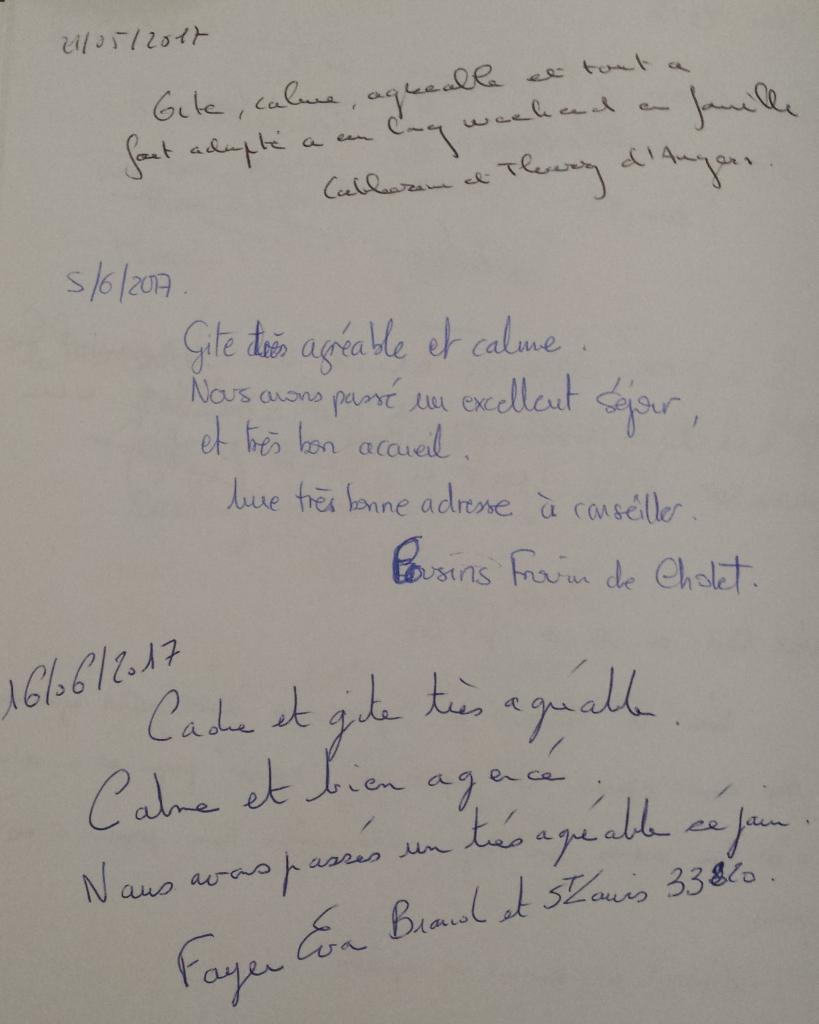 21/05/2017
Gite, calme, agreable et tout a
fait adapté a un long weekend en famille
Catherine et Thierry d'Angers.
5/6/2017.
Gite très agréable et calme.
Nous avons passé un excellent séjour,
et très bon accueil.
Une très bonne adresse à conseiller.
Cousins de Cholet.
16/06/2017
Cadre et gite très agréable.
Calme et bien agencé.
Nous avons passés un trés agréable séjour.
Eva et St Louis